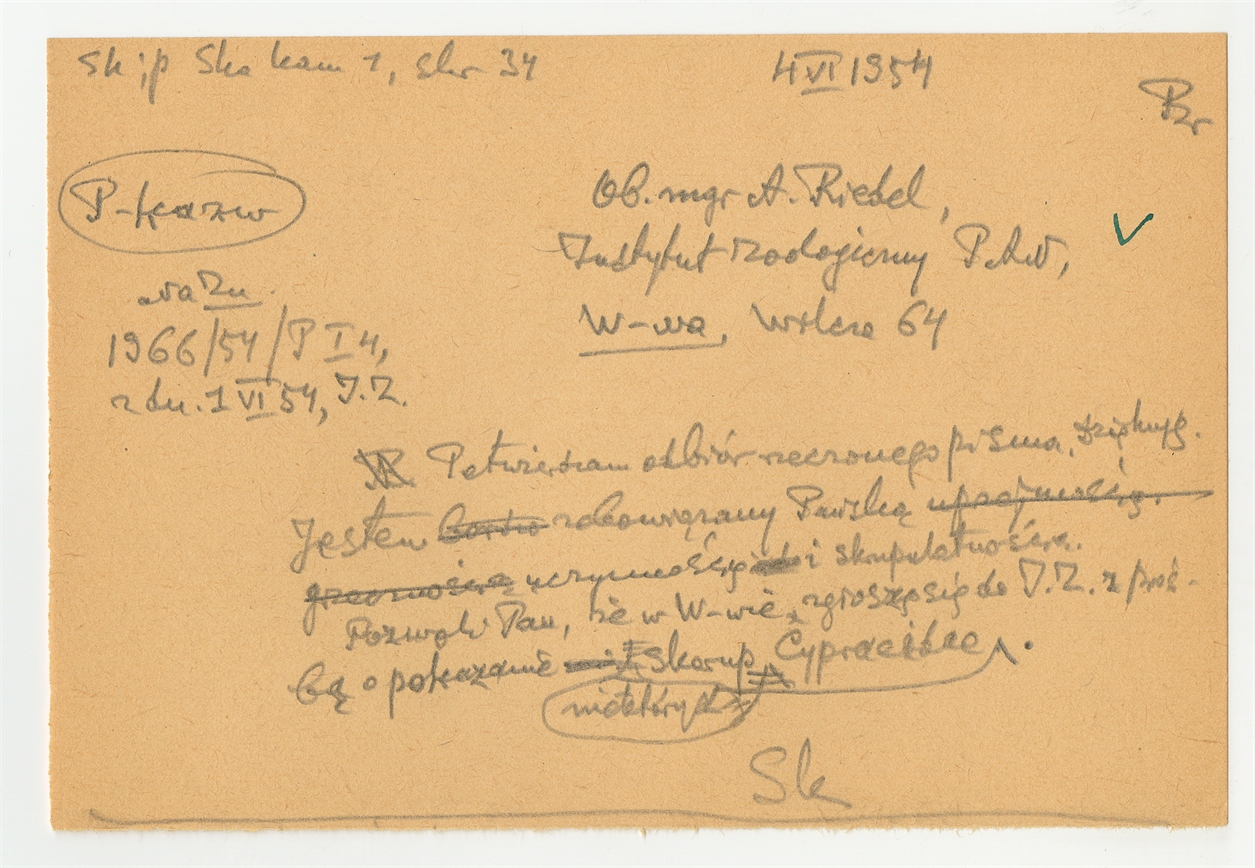 Sk ip Ska kam 1, skr 34
4 VI 1954
Br
P-kazw
Ob. mgr A. Riedel,
Instytut Zoologiczny P.A.N,
W-wa, Wilcza 64
na Zn.
1966/54/P I 4,
z dn. 1 VI 54, I.Z.
Potwierdzam odbiór rzeczonego pisma, dziękuję.
Jestem bardzo zobowiązany Pańską uprzejmością.
grzecznością uczynnością i skrupulatnością.
Pozwoli Pan, że w W-wie, zgłoszę się do I.Z. z proś-
bą o pokazanie skorup Cypraeidae.
niektórych
Sk